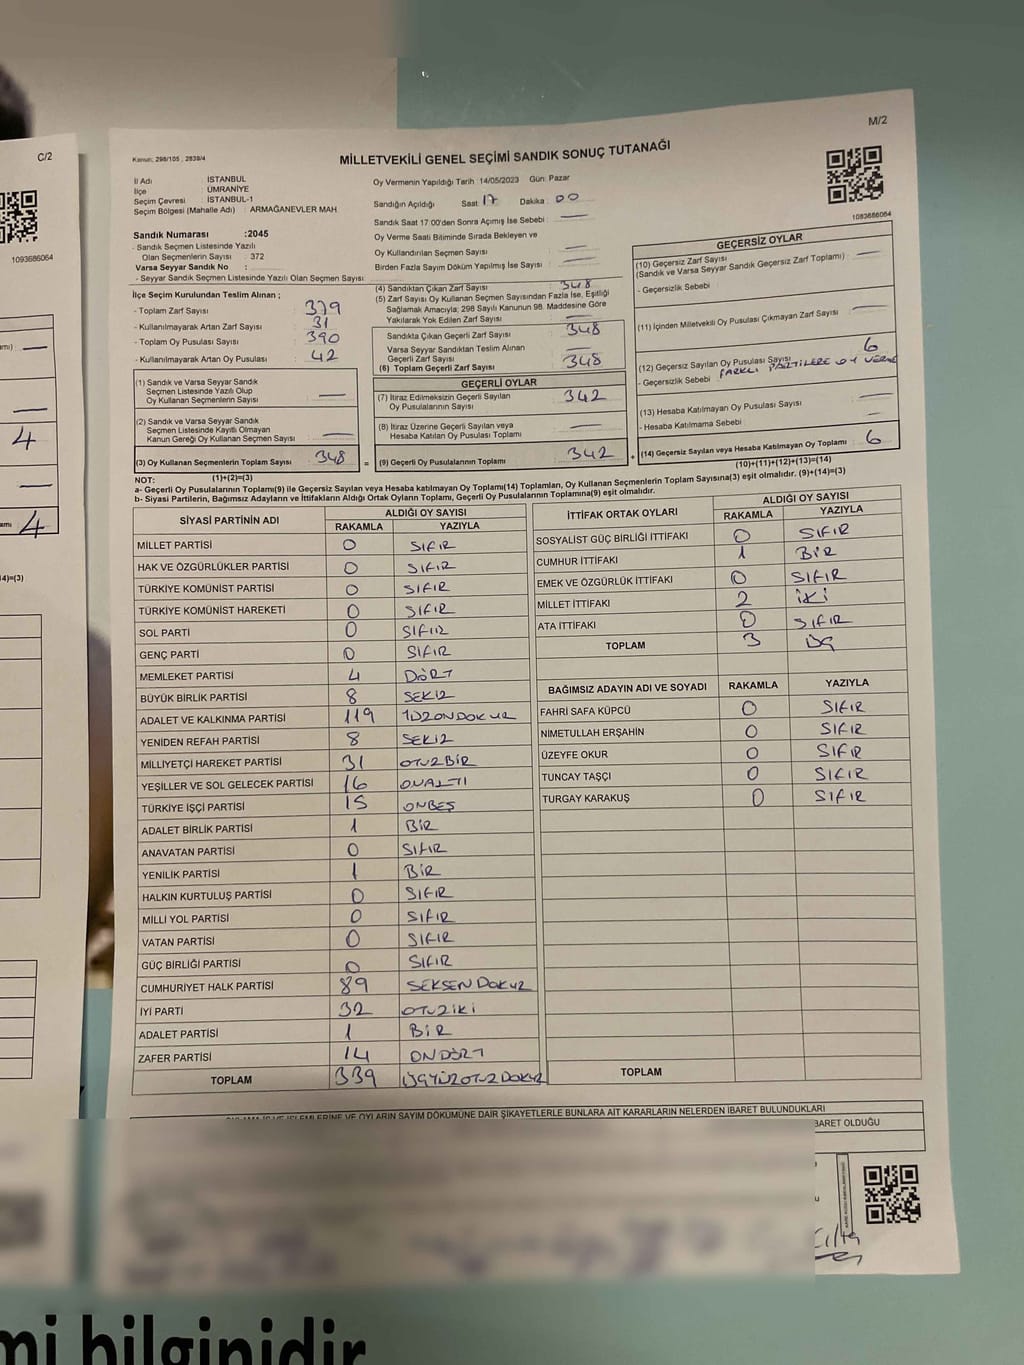 C/2
1093686064
4
4
14)=(3)
M/2
Kanun: 298/105 , 2839/4
MİLLETVEKİLİ GENEL SEÇİMİ SANDIK SONUÇ TUTANAĞI
1093686064
İl Adı : İSTANBUL
İlçe : ÜMRANİYE
Seçim Çevresi : İSTANBUL-1
Seçim Bölgesi (Mahalle Adı) : ARMAĞANEVLER MAH.
Sandık Numarası :2045
- Sandık Seçmen Listesinde Yazılı
Olan Seçmenlerin Sayısı : 372
Varsa Seyyar Sandık No :
- Seyyar Sandık Seçmen Listesinde Yazılı Olan Seçmen Sayısı :
İlçe Seçim Kurulundan Teslim Alınan ;
- Toplam Zarf Sayısı : 379
- Kullanılmayarak Artan Zarf Sayısı : 31
- Toplam Oy Pusulası Sayısı : 390
- Kullanılmayarak Artan Oy Pusulası : 42
(1) Sandık ve Varsa Seyyar Sandık
Seçmen Listesinde Yazılı Olup
Oy Kullanan Seçmenlerin Sayısı : —
(2) Sandık ve Varsa Seyyar Sandık
Seçmen Listesinde Kayıtlı Olmayan
Kanun Gereği Oy Kullanan Seçmen Sayısı : —
(3) Oy Kullanan Seçmenlerin Toplam Sayısı : 348
(1)+(2)=(3)
Oy Vermenin Yapıldığı Tarih :14/05/2023 Gün: Pazar
Sandığın Açıldığı Saat 17 Dakika : 00
Sandık Saat 17:00'den Sonra Açılmış İse Sebebi : —
Oy Verme Saati Bitiminde Sırada Bekleyen ve
Oy Kullandırılan Seçmen Sayısı : —
Birden Fazla Sayım Döküm Yapılmış İse Sayısı : —
(4) Sandıktan Çıkan Zarf Sayısı : 348
(5) Zarf Sayısı Oy Kullanan Seçmen Sayısından Fazla İse, Eşitliği
Sağlamak Amacıyla; 298 Sayılı Kanunun 98. Maddesine Göre
Yakılarak Yok Edilen Zarf Sayısı : —
Sandıkta Çıkan Geçerli Zarf Sayısı : 348
Varsa Seyyar Sandıktan Teslim Alınan
Geçerli Zarf Sayısı : —
(6) Toplam Geçerli Zarf Sayısı : 348
GEÇERLİ OYLAR
(7) İtiraz Edilmeksizin Geçerli Sayılan
Oy Pusulalarının Sayısı : 342
(8) İtiraz Üzerine Geçerli Sayılan veya
Hesaba Katılan Oy Pusulası Toplamı : —
= (9) Geçerli Oy Pusulalarının Toplamı : 342
GEÇERSİZ OYLAR
(10) Geçersiz Zarf Sayısı
(Sandık ve Varsa Seyyar Sandık Geçersiz Zarf Toplamı) : —
- Geçersizlik Sebebi :
(11) İçinden Milletvekili Oy Pusulası Çıkmayan Zarf Sayısı : —
(12) Geçersiz Sayılan Oy Pusulası Sayısı : 6
- Geçersizlik Sebebi : FARKLI PARTİLERE OY VERME
(13) Hesaba Katılmayan Oy Pusulası Sayısı : —
- Hesaba Katılmama Sebebi : —
+ (14) Geçersiz Sayılan veya Hesaba Katılmayan Oy Toplamı : 6
(10)+(11)+(12)+(13)=(14)
NOT:
a- Geçerli Oy Pusulaları Toplamı(9) ile Geçersiz Sayılan veya Hesaba Katılmayan Oy Toplamı(14) Toplamları, Oy Kullanan Seçmenlerin Toplam Sayısına(3) eşit olmalıdır. (9)+(14)=(3)
b- Siyasi Partilerin, Bağımsız Adayların ve İttifakların Aldığı Ortak Oyların Toplamı, Geçerli Oy Pusulalarının Toplamına(9) eşit olmalıdır.
SİYASİ PARTİNİN ADI ALDIĞI OY SAYISI
RAKAMLA YAZIYLA
MİLLET PARTİSİ 0 SIFIR
HAK VE ÖZGÜRLÜKLER PARTİSİ 0 SIFIR
TÜRKİYE KOMÜNİST PARTİSİ 0 SIFIR
TÜRKİYE KOMÜNİST HAREKETİ 0 SIFIR
SOL PARTİ 0 SIFIR
GENÇ PARTİ 0 SIFIR
MEMLEKET PARTİSİ 4 DÖRT
BÜYÜK BİRLİK PARTİSİ 8 SEKİZ
ADALET VE KALKINMA PARTİSİ 119 YÜZONDOKUZ
YENİDEN REFAH PARTİSİ 8 SEKİZ
MİLLİYETÇİ HAREKET PARTİSİ 31 OTUZBİR
YEŞİLLER VE SOL GELECEK PARTİSİ 16 ONALTI
TÜRKİYE İŞÇİ PARTİSİ 15 ONBEŞ
ADALET BİRLİK PARTİSİ 1 BİR
ANAVATAN PARTİSİ 0 SIFIR
YENİLİK PARTİSİ 1 BİR
HALKIN KURTULUŞ PARTİSİ 0 SIFIR
MİLLİ YOL PARTİSİ 0 SIFIR
VATAN PARTİSİ 0 SIFIR
GÜÇ BİRLİĞİ PARTİSİ 0 SIFIR
CUMHURİYET HALK PARTİSİ 89 SEKSEN DOKUZ
İYİ PARTİ 32 OTUZİKİ
ADALET PARTİSİ 1 BİR
ZAFER PARTİSİ 14 ONDÖRT
TOPLAM 339 ÜÇYÜZOTUZDOKUZ
İTTİFAK ORTAK OYLARI ALDIĞI OY SAYISI
RAKAMLA YAZIYLA
SOSYALİST GÜÇ BİRLİĞİ İTTİFAKI 0 SIFIR
CUMHUR İTTİFAKI 1 BİR
EMEK VE ÖZGÜRLÜK İTTİFAKI 0 SIFIR
MİLLET İTTİFAKI 2 İKİ
ATA İTTİFAKI 0 SIFIR
TOPLAM 3 ÜÇ
BAĞIMSIZ ADAYIN ADI VE SOYADI RAKAMLA YAZIYLA
FAHRİ SAFA KÜPCÜ 0 SIFIR
NİMETULLAH ERŞAHİN 0 SIFIR
ÜZEYFE OKUR 0 SIFIR
TUNCAY TAŞÇI 0 SIFIR
TURGAY KARAKUŞ 0 SIFIR
TOPLAM
OYLARIN SAYIM DÖKÜMÜNE DAİR ŞİKAYETLERLE BUNLARA AİT KARARLARIN NELERDEN İBARET BULUNDUKLARI
BARET OLDUĞU
mi bilginidir